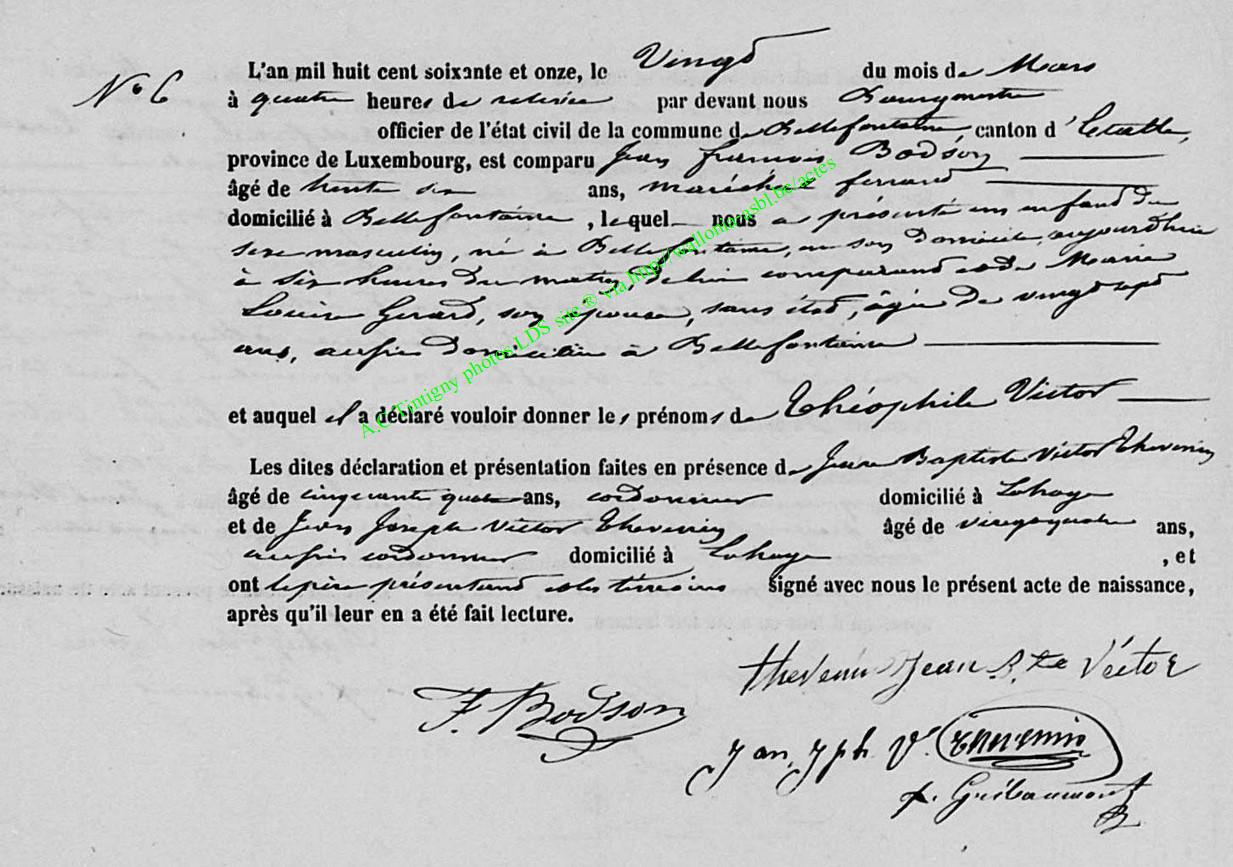 N° 6
L'an mil huit cent soixante et onze, le Vingt du mois de Mars
à quatre heures de relevée par devant nous Bourgmestre
officier de l'état civil de la commune de Bellefontaine, canton d'Etalle,
province de Luxembourg, est comparu Jean François Bodson
âgé de trente six ans, maréchal ferrant
domicilié à Bellefontaine, lequel nous a présenté un enfant du
sexe masculin, né à Bellefontaine, en son domicile, aujourdhui
à six heures du matin, de lui comparant et de Marie
Louise Gerard, son épouse, sans état, âgée de vingt sept
ans, aussi domiciliée à Bellefontaine
et auquel il a déclaré vouloir donner les prénoms de Théophile Victor
Les dites déclaration et présentation faites en présence de Jean Baptiste Victor Thevenin
âgé de cinquante quatre ans, cordonnier domicilié à Lahage
et de Jean Joseph Victor Thevenin âgé de vingt quatre ans,
aussi cordonnier domicilié à Lahage, et
ont le père présentant et les témoins signé avec nous le présent acte de naissance,
après qu'il leur en a été fait lecture.
thevenin Jean B.te Victor
F. Bodson
Jan Jph V. Thevenin
A.C Tintigny photos LDS site ® via http//wallonia.asbl.be/actes